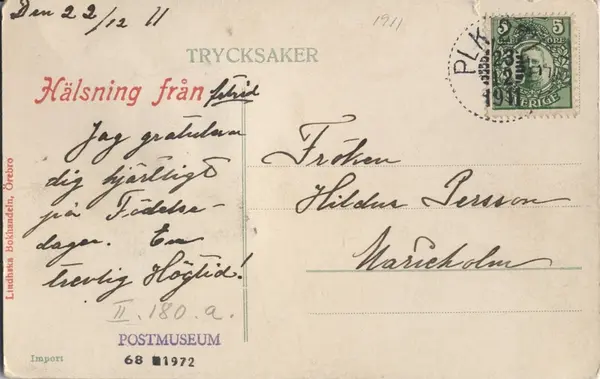 Den 22/12 11
1911
TRYCKSAKER
Hälsning från
Jag gratulera
dig hjärtligt
på Födelse-
dagen. En
trevlig Högtid!
II. 180. a.
POSTMUSEUM
68 1972
Import
Lindhska Bokhandeln, Örebro
5 5
ÖRE
SVERIGE
PLK
23
12
1911
Fröken
Hildur Persson
Marieholm